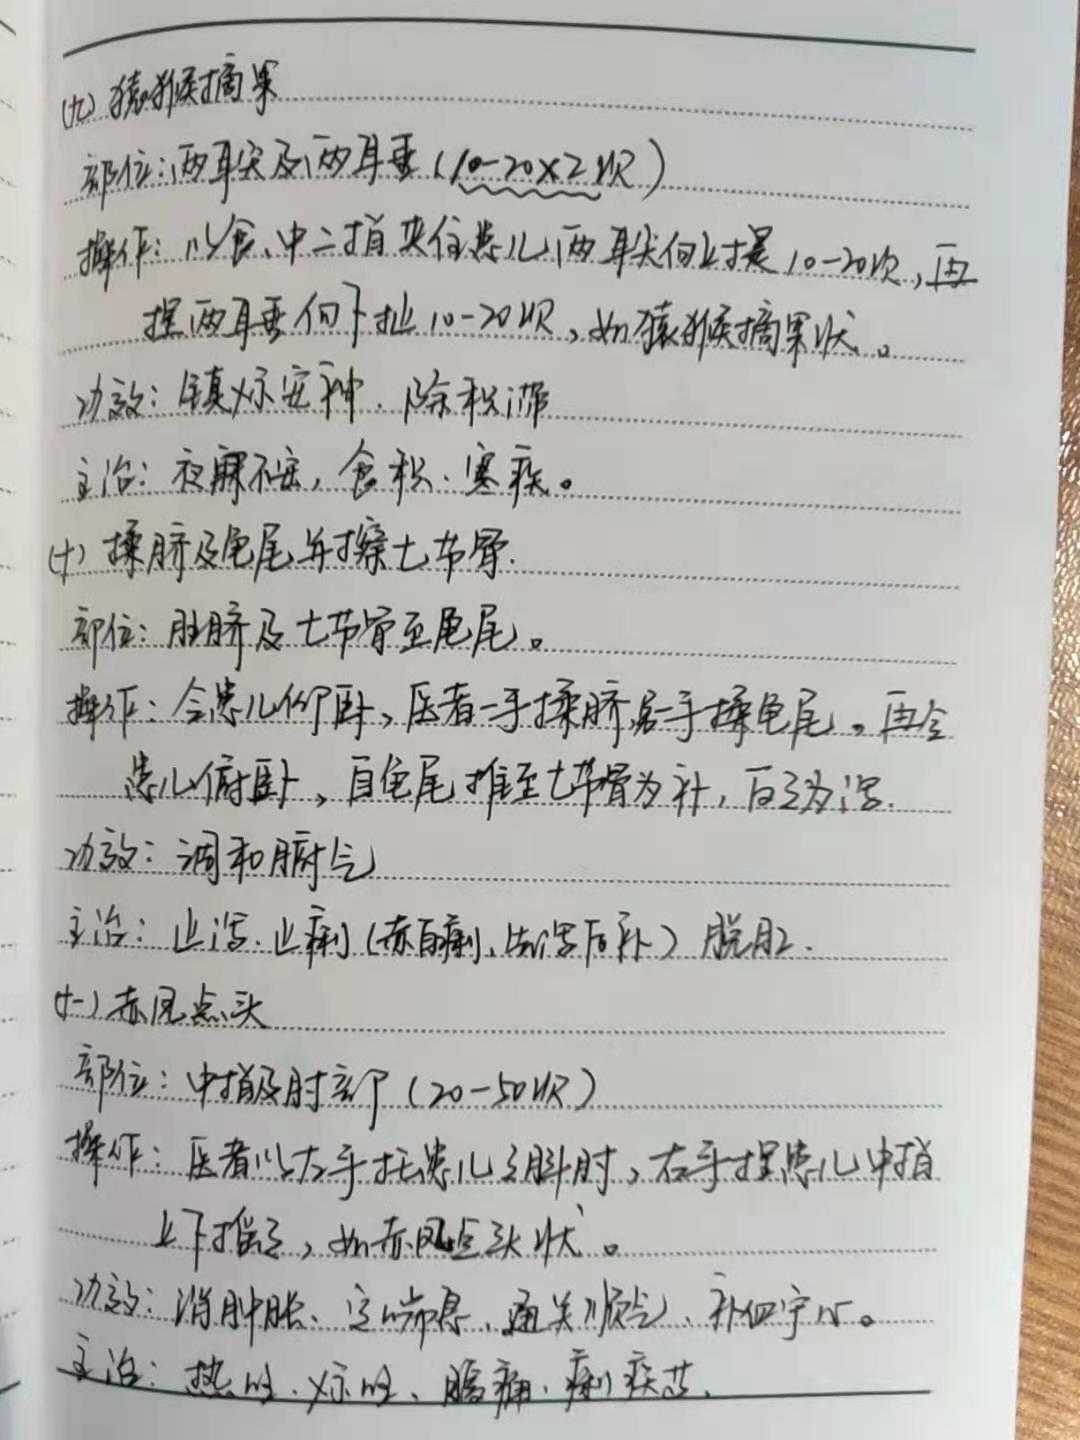 (九)猿猴摘果
部位:两耳尖及两耳垂(10-20×2次)
操作:以食、中二指夹住患儿两耳尖向上提10-20次,再
捏两耳垂向下扯10-20次,如猿猴摘果状。
功效:镇惊安神、除积滞
主治:夜寐不安,食积、寒疾。
(十)揉脐及龟尾并擦七节骨.
部位:肚脐及七节骨至龟尾。
操作:令患儿仰卧、医者一手揉脐,另一手揉龟尾。再令
患儿俯卧,自龟尾推至七节骨为补,反之为泻.
功效:调和腑气
主治:止泻、止痢(赤白痢、先泻后补)脱肛.
(十一)赤凤点头
部位:中指及肘部(20-50次)
操作:医者以左手托患儿之䏝肘,右手捏患儿中指
上下摇之,如赤凤点头状。
功效:消肿胀、定喘息、通关顺气、补血宁心。
主治:热咳、惊咳、胸痛、痢疾等.